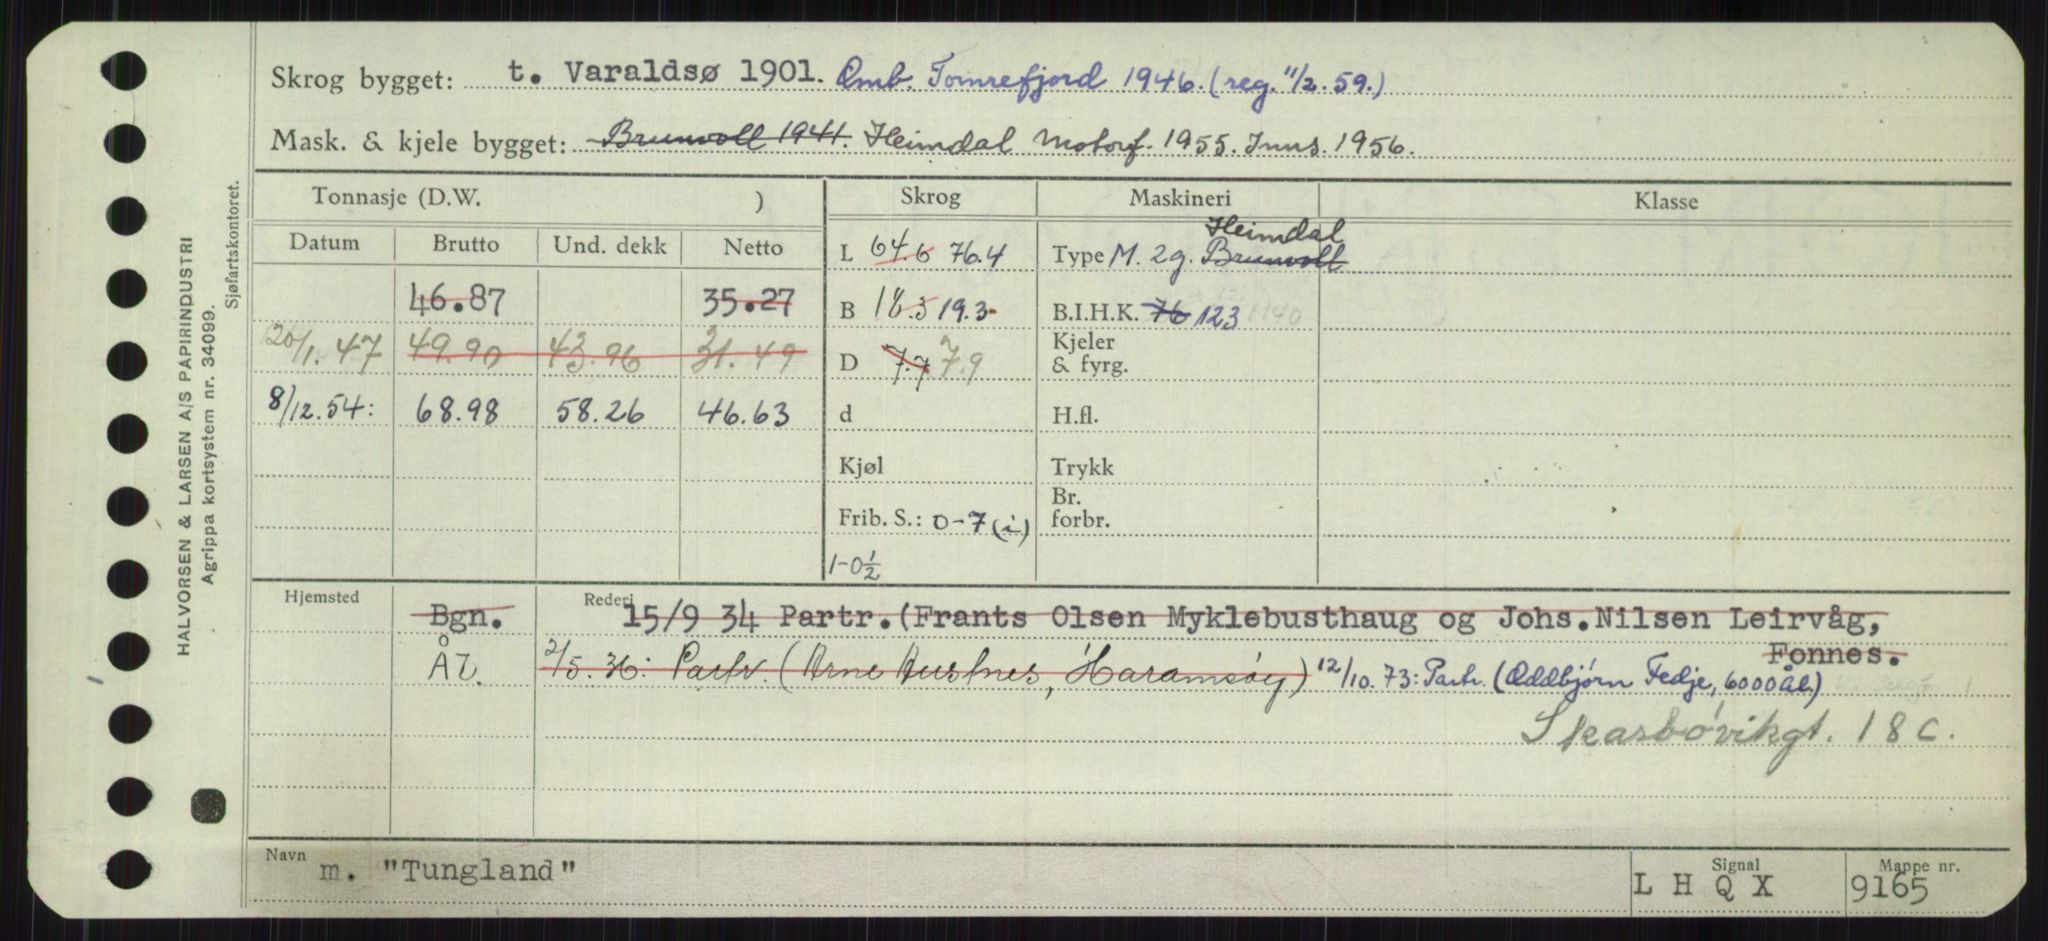 Skrog bygget: t. Varaldsø 1901. Omb. Tomrefjord 1946. (reg. 11/2. 59.)
Mask. & kjele bygget: Brunvoll 1941. Heimdal Motorf. 1955. Inns. 1956.
Tonnasje (D.W. ) Skrog Maskineri Klasse
Datum Brutto Und. dekk Netto
L 64.6 76.4 Type M. 2g. Brunvoll Heimdal
46.87 35.27 B 18.3 19.3 B.I.H.K. 76 123
20/1. 47 49.90 43.96 31.49 D 7.7 7.9 Kjeler & fyrg.
8/12. 54: 68.98 58.26 46.63 d H.fl.
Kjøl Trykk
Frib. S.: 0-7 (i) Br. forbr.
1-0½
Hjemsted Rederi
Bgn. 15/9 34 Partr. (Frants Olsen Myklebusthaug og Johs. Nilsen Leirvåg,
Fonnes.
Ål. 2/5. 36: Partr. (Arne Austnes, Haramsøy) 12/10. 73: Partr. (Oddbjørn Fedje, 6000 Ål.)
Skarbøvikgt. 18 C.
Navn m. "Tungland" Signal L H Q X Mappe nr. 9165
HALVORSEN & LARSEN A/S PAPIRINDUSTRI
Agrippa kortsystem nr. 34099.
Sjøfartskontoret.